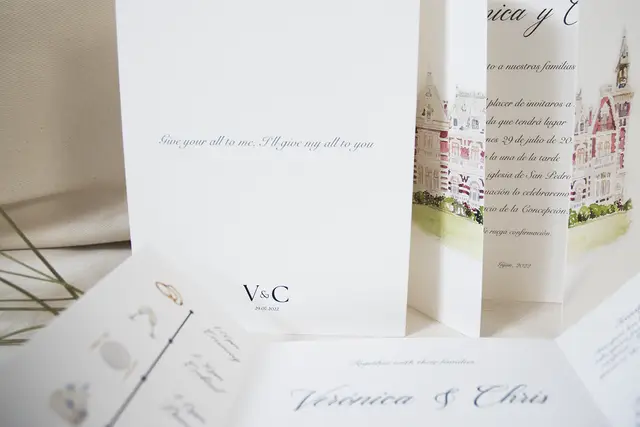 Give your all to me, I'll give my all to you
V&C
nica y C
to a nuestras familias
placer de invitaros a
da que tendrá lugar
nes 29 de julio de 20
la una de la tarde
iglesia de San Pedro
uación lo celebraremos
cio de la Concepción
Gijón, 2022
Together with their families
Verónica & Chris